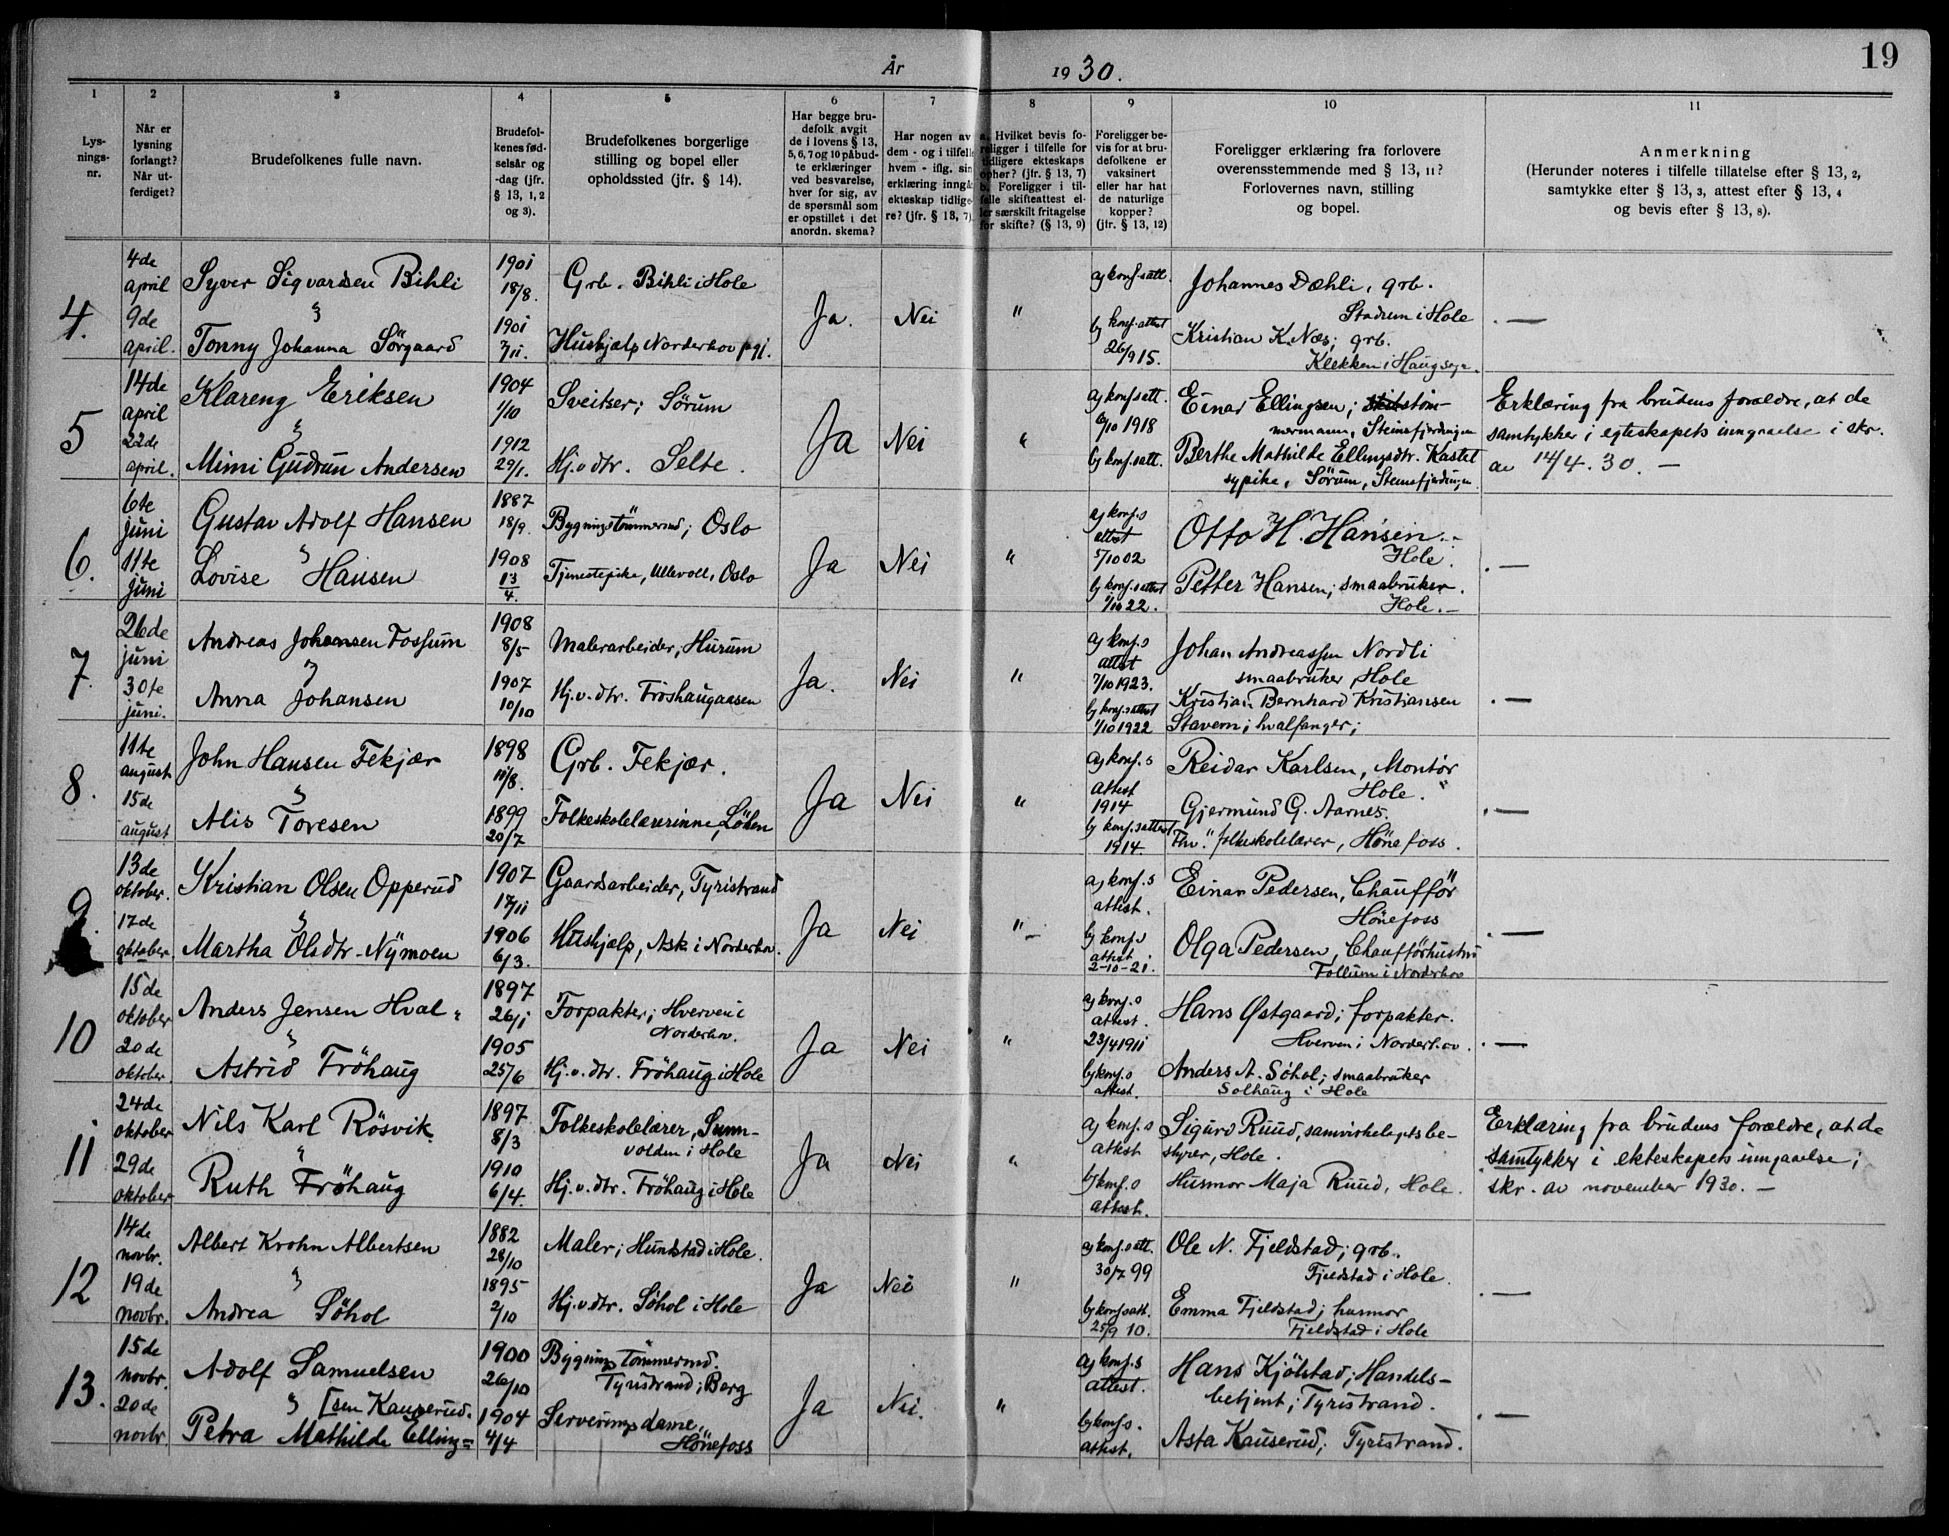 19
År 1930.
1 2 3 4 5 6 7 8 9 10 11
Lys-
nings-
nr.
Når er
lysning
forlangt?
Når ut-
ferdiget?
Brudefolkenes fulle navn.
Brudefol-
kenes fød-
selsår og
-dag (jfr.
§ 13, 1, 2
og 3).
Brudefolkenes borgerlige
stilling og bopel eller
opholdssted (jfr. § 14).
Har begge bru-
defolk avgit
de i lovens § 13,
5, 6, 7 og 10 påbud-
te erklæringer
ved besvarelse,
hver for sig, av
de spørsmål som
er opstillet i det
anordn. skema?
Har nogen av
dem - og i tilfelle
hvem - iflg. sin
erklæring inngåt
ekteskap tidlige-
re? (jfr. § 13, 7).
a. Hvilket bevis fo-
religger i tilfelle for
tidligere ekteskaps
ophør? (jfr. § 13, 7)
b. Foreligger i til-
felle skifteattest el-
ler særskilt fritagelse
for skifte? (§ 13, 9)
Foreligger be-
vis for at bru-
defolkene er
vaksinert
eller har hat
de naturlige
kopper?
(jfr. § 13, 12)
Foreligger erklæring fra forlovere
overensstemmende med § 13, 11?
Forlovernes navn, stilling
og bopel.
Anmerkning
(Herunder noteres i tilfelle tillatelse efter § 13, 2,
samtykke efter § 13, 3, attest efter § 13, 4
og bevis efter § 13, 8).
4.
4de
april
9de
april.
Syver Sigvardsen Bihli
"
Tonny Johanna Sörgaard
1901
18/8.
1901
7/11.
Grb. Bihli i Hole
Hushjælp Norderhov pgj.
Ja.
Nei
"
a) konf.satt.
b) konf.attest
26/9 15.
Johannes Dæhli, grb.
Stadum i Hole
Kristian K. Næs; grb.
Klekken i Haugsogn.
. —
5
14de
april
22de
april.
Klareng Eriksen
"
Mimi Gudrun Andersen
1904
1/10
1912
29/1.
Sveitser; Sörum
Hj.v. dtr. Selte.
Ja
Nei
"
a) konf.satt.
6/10 1918
b) konf.satt.
Einar Ellingsen; töm-
mermann, Steinsfjerdingen
Berthe Mathilde Ellingsdtr. Kastet
sypike, Sörum, Steinsfjerdingen
Erklæring fra brudens forældre, at de
samtykker i egteskapets inngaaelse i skr.
av 14/4. 30. —
6.
6te
juni
11te
juni
Gustav Adolf Hansen
"
Lovise Hansen
1887
18/9.
1908
13/4.
Bygningstömmermd; Oslo
Tjenestepike, Ullevoll, Oslo
Ja
Nei
"
a) konf.s
attest
5/10 02
b) konf.sattest
1/10 22.
Otto H. Hansen.
Hole.
Petter Hansen; smaabruker.
Hole. —
. —
7.
26de
juni
30te
juni.
Andreas Johansen Fossum
"
Anna Johansen
1908
8/5
1907
10/10
Malerarbeider, Hurum
Hj.v. dtr. Fröshaugaasen
Ja.
Nei
"
a) konf.s
attest
7/10 1923.
b) konf.sattest
1/10 1922
Johan Andreassen Nordli
smaabruker, Hole
Kristian Bernhard Kristiansen
Stavern; hvalfanger;
. —
8.
11te
august
15de
august
John Hansen Fekjær
"
Alis Toresen
1898
11/8.
1899
20/7
Grb. Fekjær.
Folkeskolelærerinne, Löken
Ja
Nei
"
a) konf.s
attest
1914
b) konf.sattest
1914.
Reidar Karlsen, Montör
Hole.
Gjermund G. Aarnes.
Fhv. folkeskolelærer, Hönefoss.
. —
9.
13de
oktober.
17de
oktober.
Kristian Olsen Opperud
"
Martha Olsdtr. Nymoen
1907
17/11
1906
6/3.
Gaardsarbeider, Tyristrand
Hushjælp, Ask i Norderhov.
Ja
Nei
" —
a) konf.s
attest.
b) konf.s
attest
2-10-21.
Einar Pedersen, Chaufför
Hönefoss
Olga Pedersen, Chaufförhustru
Follum i Norderhov
. —
10
15de
oktober
20de
oktober.
Anders Jensen Hval
"
Astrid Fröhaug
1897
26/1
1905
25/6
Forpakter; Hverven i
Norderhov.
Hj.v. dtr. Fröhaug i Hole
Ja
Nei
"
a) konf.s
attest.
23/4 1911
b) konf.s
attest.
Hans Østgaard; forpakter.
Hverven i Norderhov.
Anders A. Söhol; smaabruker
Solhaug i Hole
. —
11
24de
oktober
29de
oktober
Nils Karl Rösvik.
"
Ruth Fröhaug
1897
8/3
1910
6/4.
Folkeskolelærer, Sunn-
volden i Hole
Hj.v. dtr. Fröhaug i Hole
Ja
Nei
"
a) konf.s
attest
b) konf.s
attest.
Sigurd Ruud, samvirkelagsbe-
styrer, Hole.
Husmor Maja Ruud, Hole.
Erklæring fra brudens forældre, at de
samtykker i ekteskapets inngaaelse;
skr. av november 1930. —
12
14de
novbr.
19de
novbr.
Albert Krohn Albertsen
"
Andrea Söhol
1882
28/10
1895
2/10
Maler; Hundstad i Hole.
Hj.v. dtr. Söhol i Hole
Ja
Nei
"
a) konf.satt.
30/7 99
b) konf.satt.
25/9 10.
Ole N. Fjeldstad; grb.
Fjeldstad i Hole.
Emma Fjeldstad; husmor
Fjeldstad i Hole
. —
13.
15de
novbr.
20de
novbr.
Adolf Samuelsen
" [sen Kauserud.
Petra Mathilde Elling=
1900
26/10
1904
4/4
Bygningstömmermd.
Tyristrand; Berg
Serveringsdame,
Hönefoss
Ja
Nei.
"
a) konf.s
attest.
b) konf.s.
attest.
Hans Kjölstad; Handels-
betjent; Tyristrand.
Asta Kauserud; Tyristrand.
. —